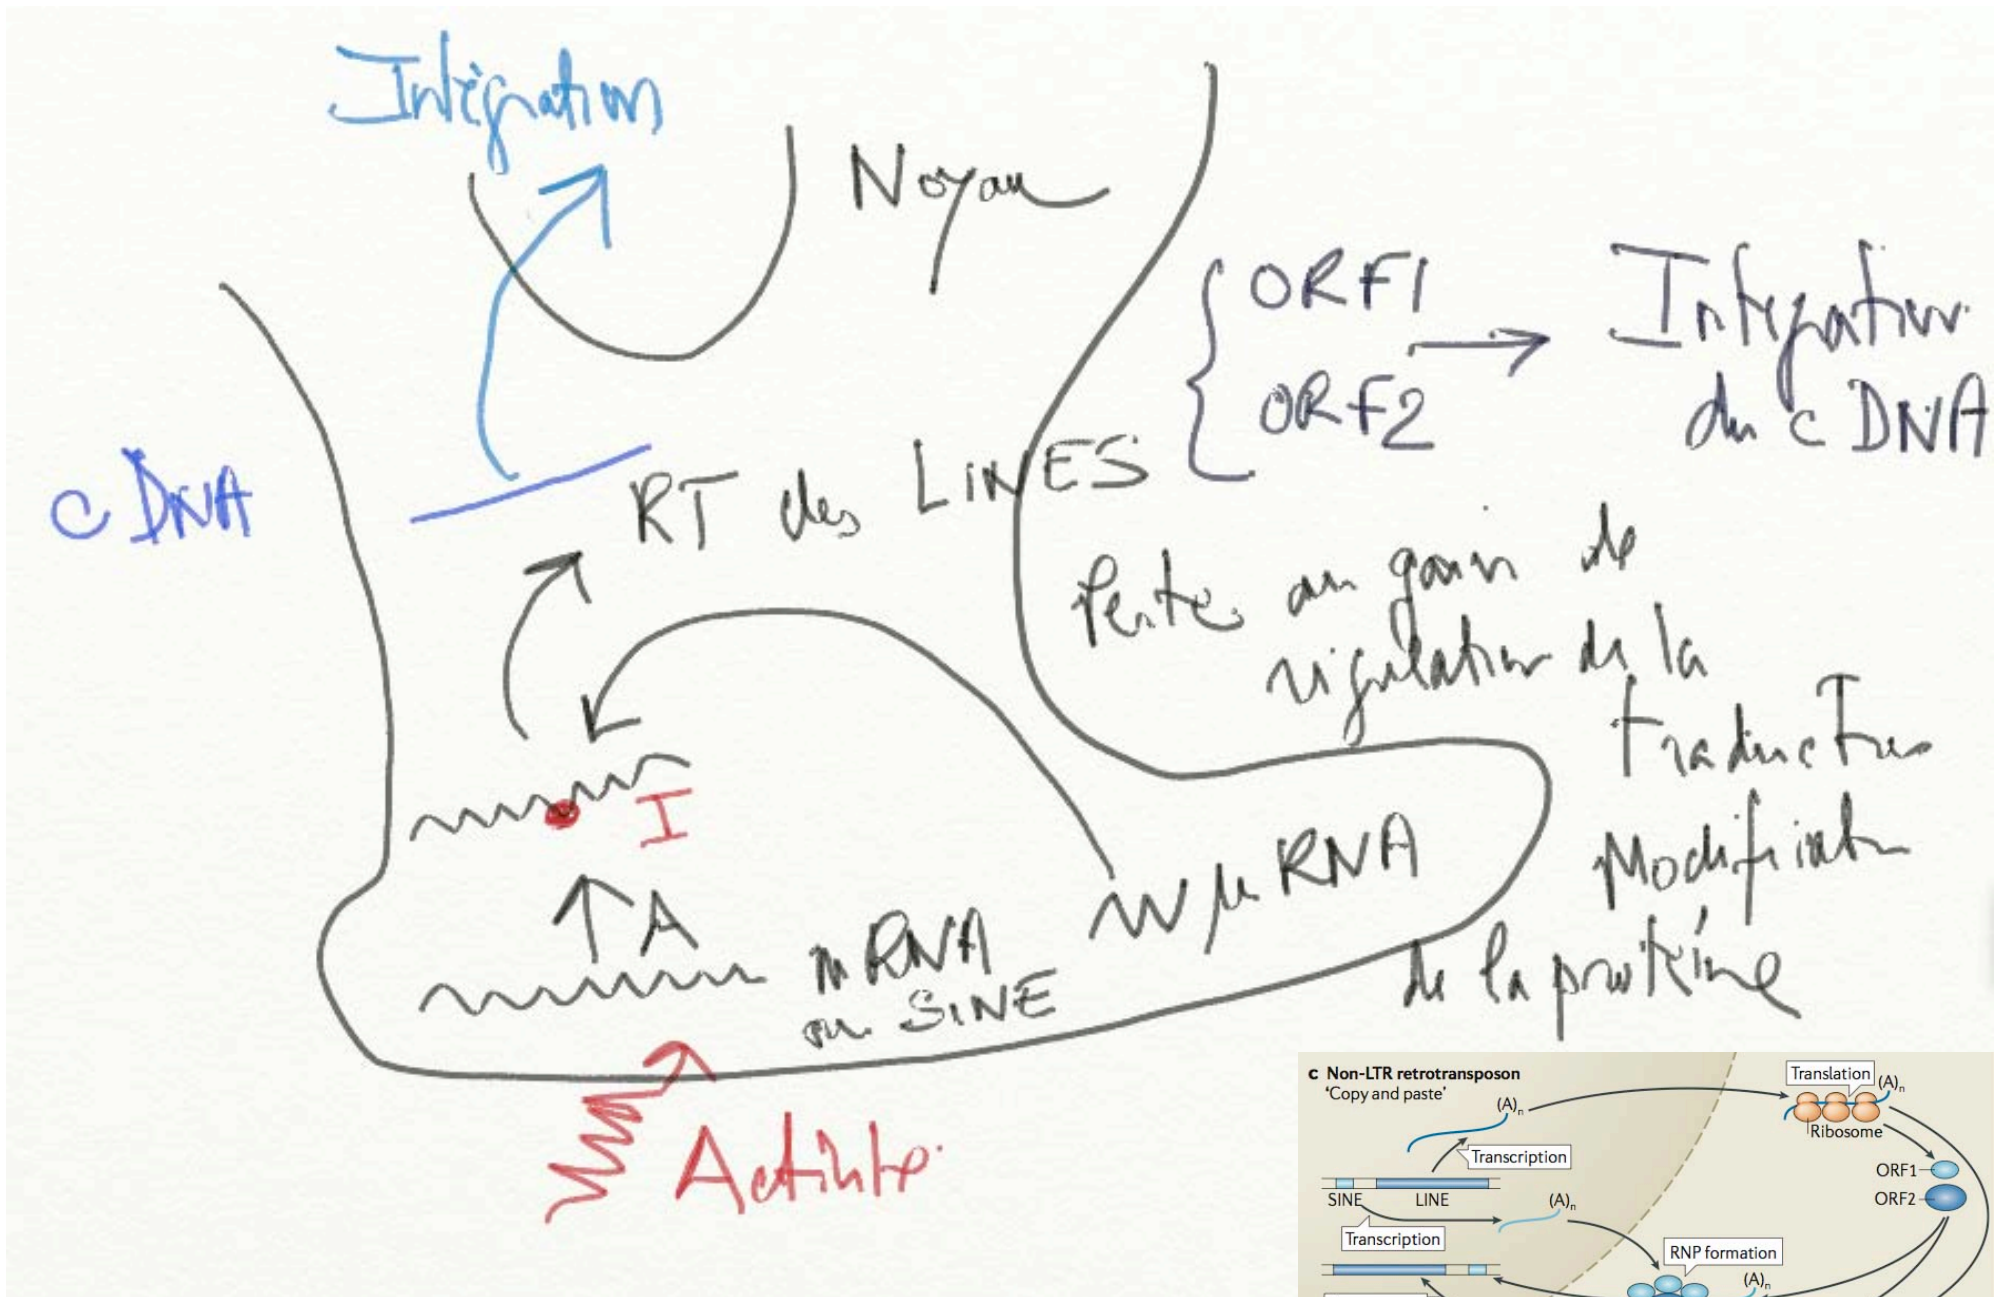 Intégration
Noyau
ORF1
ORF2
Intégration
du c DNA
c DNA
RT des LINES
Perte ou gain de
régulation de la
traduction
Modification
de la protéine
I
A
mRNA
ou SINE
µRNA
Activité
c Non-LTR retrotransposon
'Copy and paste'
Translation
(A)n
(A)n
Ribosome
Transcription
ORF1
SINE LINE
ORF2
(A)n
Transcription
RNP formation
(A)n